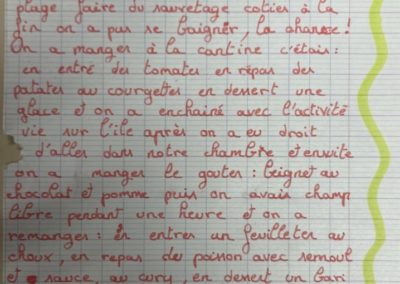 plage faire du sauvetage cotier à la
fin on a pas se baigner, la chance!
On a manger à la cantine c'étais:
en entré des tomates en repas des
patates au courgettes en dessert une
glace et on a enchainé avec l'activité
vie sur l'ile après on a eu droit
d'aller dans notre chambre et ensuite
on a manger le gouter: beignet au
chocolat et pomme puis on avais champ
libre pendant une heure et on a
remanger: en entrer un feuilleter au
choux, en repas du poisson avec semoul
et sauce, au cury, en dessert un bari